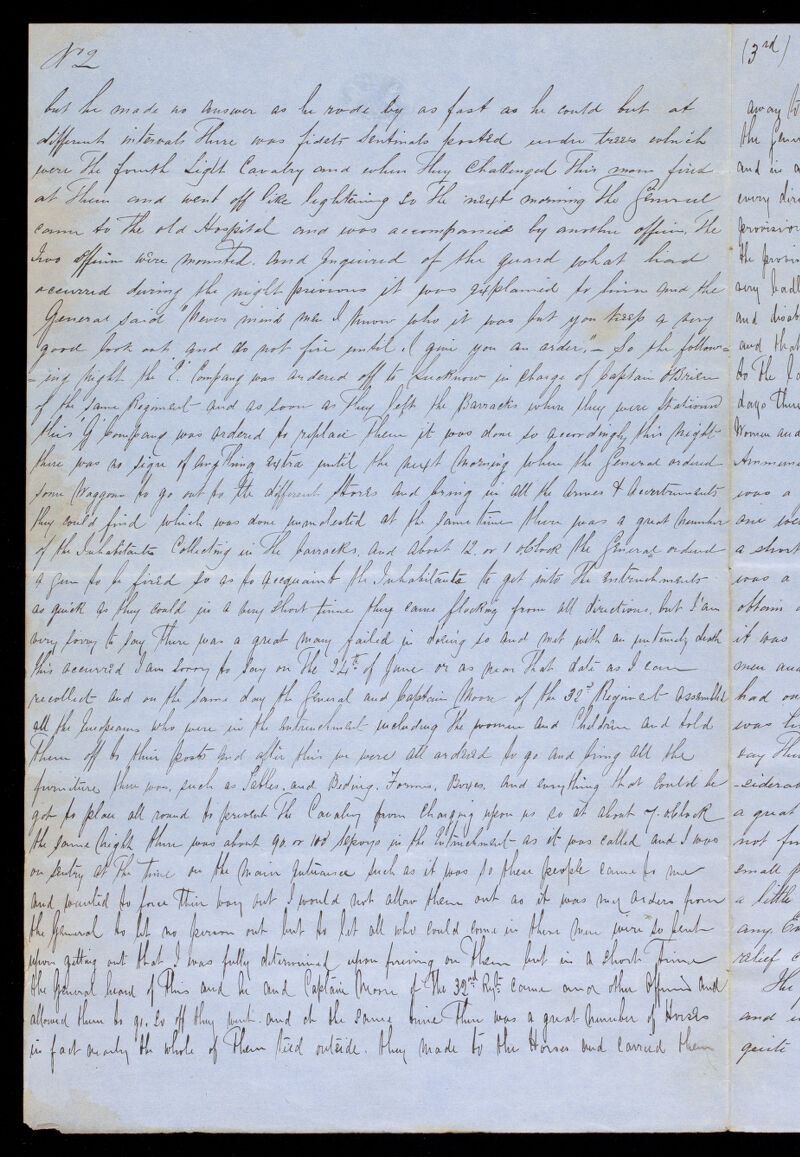 No 2
but he made no answer as he rode by as fast as he could but at
different intervals there was fidets Sentinals posted under trees which
were the fourth Light Cavalry and when they Challenged this man fired
at them and went off like lightning so the next morning the General
came to the old Hospital and was accompanied by another officer. The
two officers were mounted. and Inquired of the guard what had
occurred during the night previous it was explained to him and the
General said "Never mind men I know who it was but you keep a very
good look out and do not fire until I give you an order." So the follow=
=ing night the Company was ordered off to Lucknow in charge of Captain OBrien
of the same Regiment and as soon as they left the Barracks where they were stationed
this "G" Company was ordered to replace them it was done so accordingly this night
there was no sign of anything extra until the next morning when the General ordered
some Waggons to go out to the different Stores and bring in all the Arms & Accoutrements
they could find which was done unmolested at the same time there was a great number
of the Inhabitants Collecting in the barracks. and about 12 or 1 oClock the General ordered
a gun to be fired so as to acquaint the Inhabitants to get into the entrenchments
as quick as they could in a very short time they came flocking from all directions. but I am
very sorry to say there was a great many failed in doing so and met with an untimely death
this occurred I am sorry to say on the 24th of June or as near that date as I can
recollect and on the same day the General and Captain Moore of the 32d Regiment assembled
all the Europeans who were in the entrenchment including the women and Children and told
them off to their posts and after this we were all ordered to go and bring all the
furniture there was, such as Tables. and Beding. Forms, Boxes. and everything that could be
got to place all round to prevent the Cavalry from Charging upon us so at about 7. oClock
the same Night there was about 90. or 100 sepoys in the Entrenchment as it was called and I was
on Sentry at the time on the main Entrance such as it was so these people came to me
and wanted to force their way out I would not allow them out as it was my orders from
the General to let no person out but to let all who could come in these men were so bent
upon getting out that I was fully determined upon fireing on them but in a short time
the General heard of this and he and Captain Moore of the 32nd Regt. came and other Officers and
allowed them to go. so off they went. and at the same time there was a great number of Horses
in fact nearly the whole of them tied outside. they made to the Horses and carried them
(3rd)
away
the Gener
and in a
every dire
provision
the provis
very badl
and disab
and that
to the
days there
Women and
Ammuni
was a
one we
a short
was a
obtain
it was
men and
had on
was
say Th
=siderab
a great
not fi
small p
a little
any
relief
The
and
quite